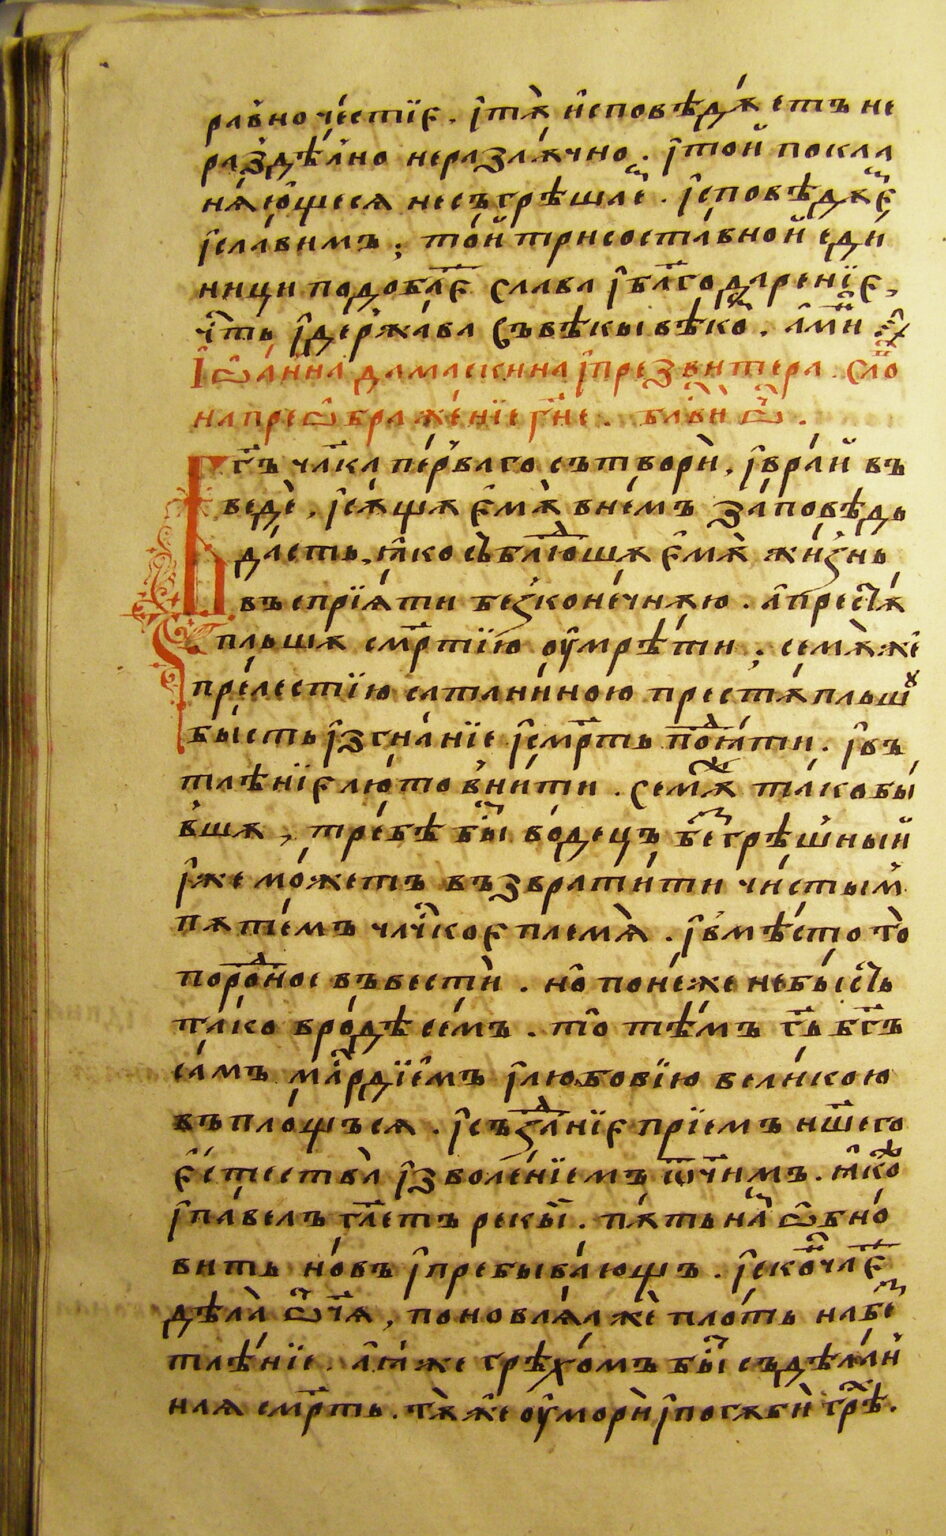 ра́вно че́стїе . і҆тѫ̀ и҆споvѣ́дѫетъ не
раз̾дѣ́лно неразлѫ́чно . і҆той покла
нѧ́ю҆щеся несъгрѣша́е . і҆сповѣ́дѫе҆
і҆сла́вимъ ; то́й трисоста́вной еди́
ници подобае҆ слава і҆бл҃годаре́нїе ,
че҆сть і҆держа́ва съвѣкы вѣ́кѡ . а҆ми́н
І҆ѡ҆а́нна дамаскина і҆презвитера . сло҆
на преѡ҆браже́нїе гн҃е . бл҃ви ѿ .
г҃ь чл҃ка пе́рваго сътвори̇̀ , і҆вра́й въ
веде̇̀ , і҆сѫ́щѫ е҆мѫ̀ вне́мъ за́повѣдь
да́сть , ꙗ҆ко съблю́шѫ е҆мѫ̀ жи́знь
въсприѧ́ти безконе́чнѫю . а҆престѫ́
плъшѫ см҃ртїю ᲂу҆мрѣ́ти . семѫ̀же
пре́лестїю сатани́ною престѫ́плъшꙋ
бы́сть і҆згна́нїе і҆см҃рть поꙗ́ти . і҆въ
тлѣ́нїе лю́то в̾ни́ти . семѫ̀ тако бы́
в̾шѫ , тре́бѣ бы во́децъ безгрѣ́шный
і҆же мо́жетъ възврати́ти чи́стым̾
пѫте́мъ чл҃ч҇кое пле́мѧ . і҆в̾мѣ́сто то̀
поро́дное въвести̇̀ . но̑ поне́же небы́сть
та́ко бро́дѣ се́мъ . то̑ тѣ́мъ г҃ь бг҃ъ
са́мъ млⷭ҇рдїе́мъ і҆любо́вїю вели́кою
въпло́щься . і҆създа́нїе прїе́мъ нш҃его
е҆стества̀ і҆зволе́нїемъ ѿч҃имъ . ꙗ҆ко
і҆па́велъ гл҃етъ рекы́ . пѫ́ть на́ ѡ҆бно́
вить но́въ і҆пребыва́ющъ . і҆скончае҆
дѣла̀ ѿч҃ꙗ , поновлѧ́а же̇̀ пло́ть набе
тлѣ́нїе . а҆ꙗ́же грѣхо́мъ бы съдѣ́ан̾
наꙗ см҃рть . тѫ̀ же ᲂу҆мори̇̀ і҆погѫби̇̀ грѣ́ .